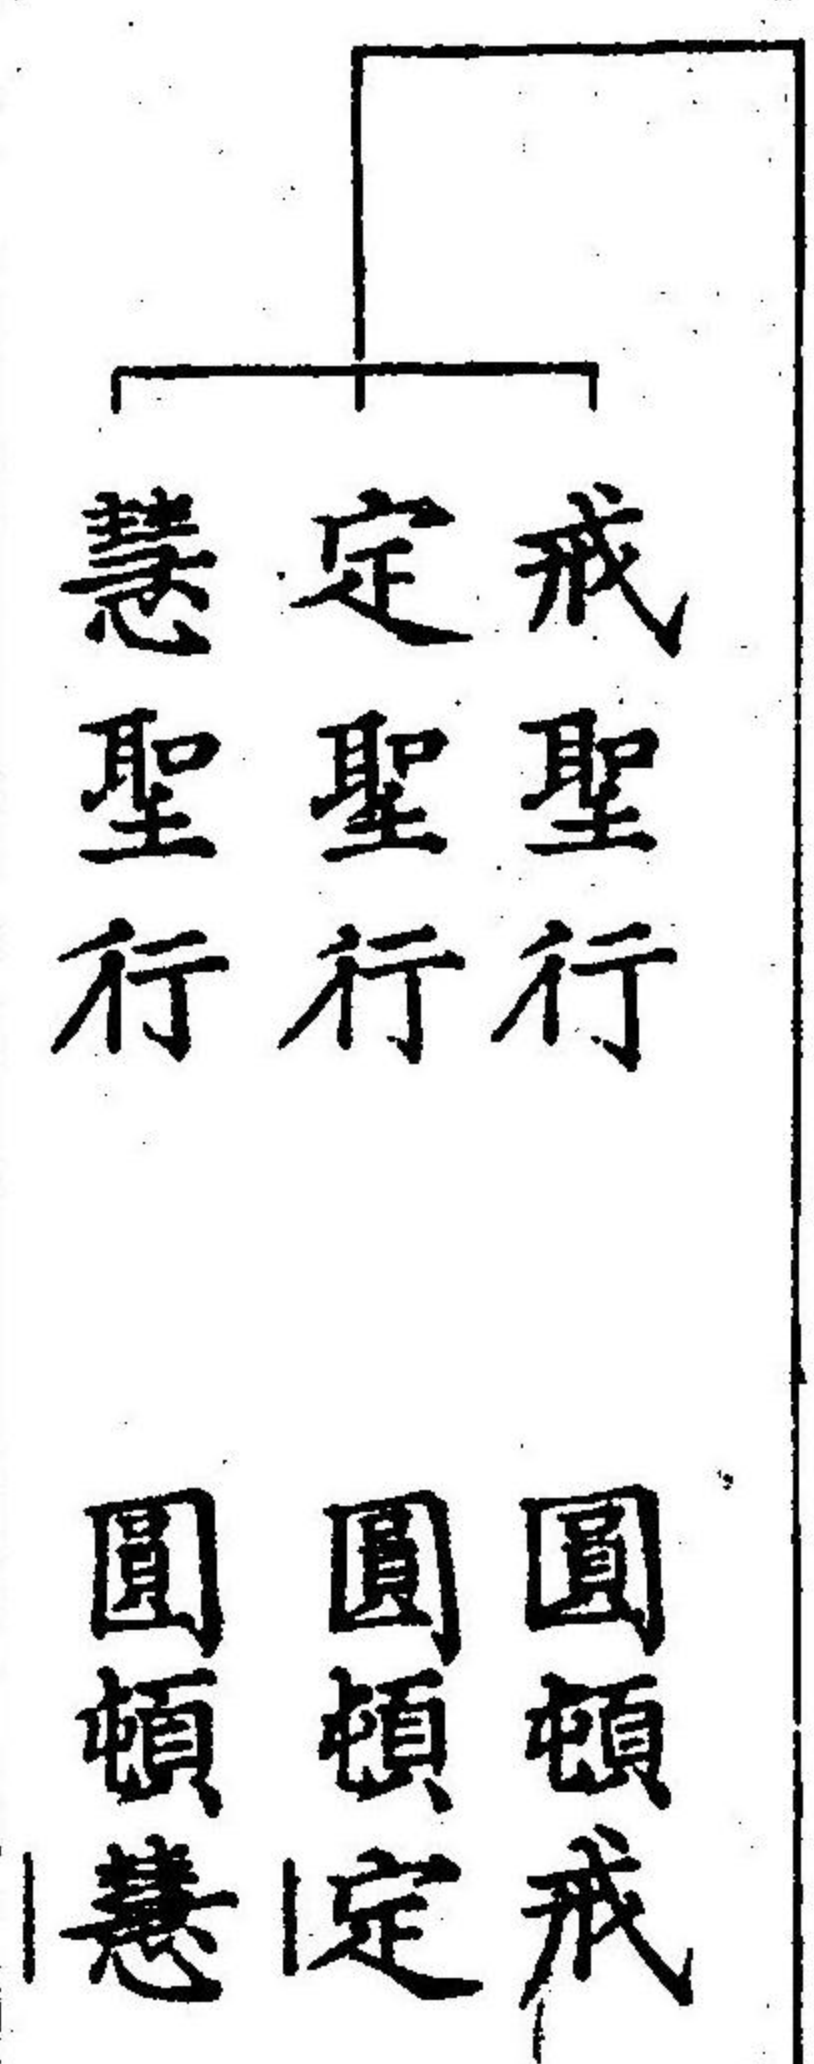 戒聖行 圓頓戒
定聖行 圓頓定
慧聖行 圓頓慧